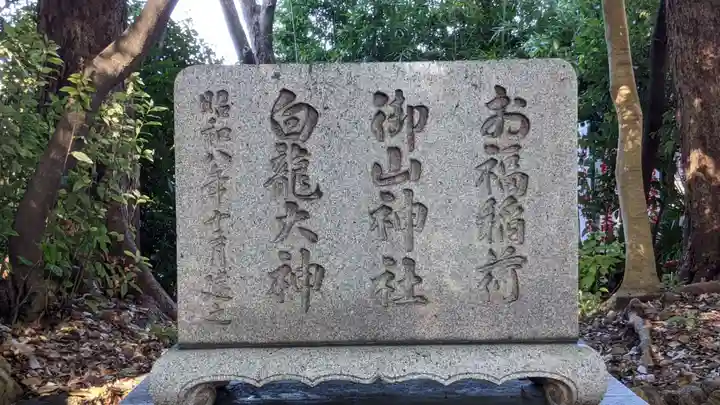 お福稲荷
御山神社
白龍大神
昭和八年十一月造之